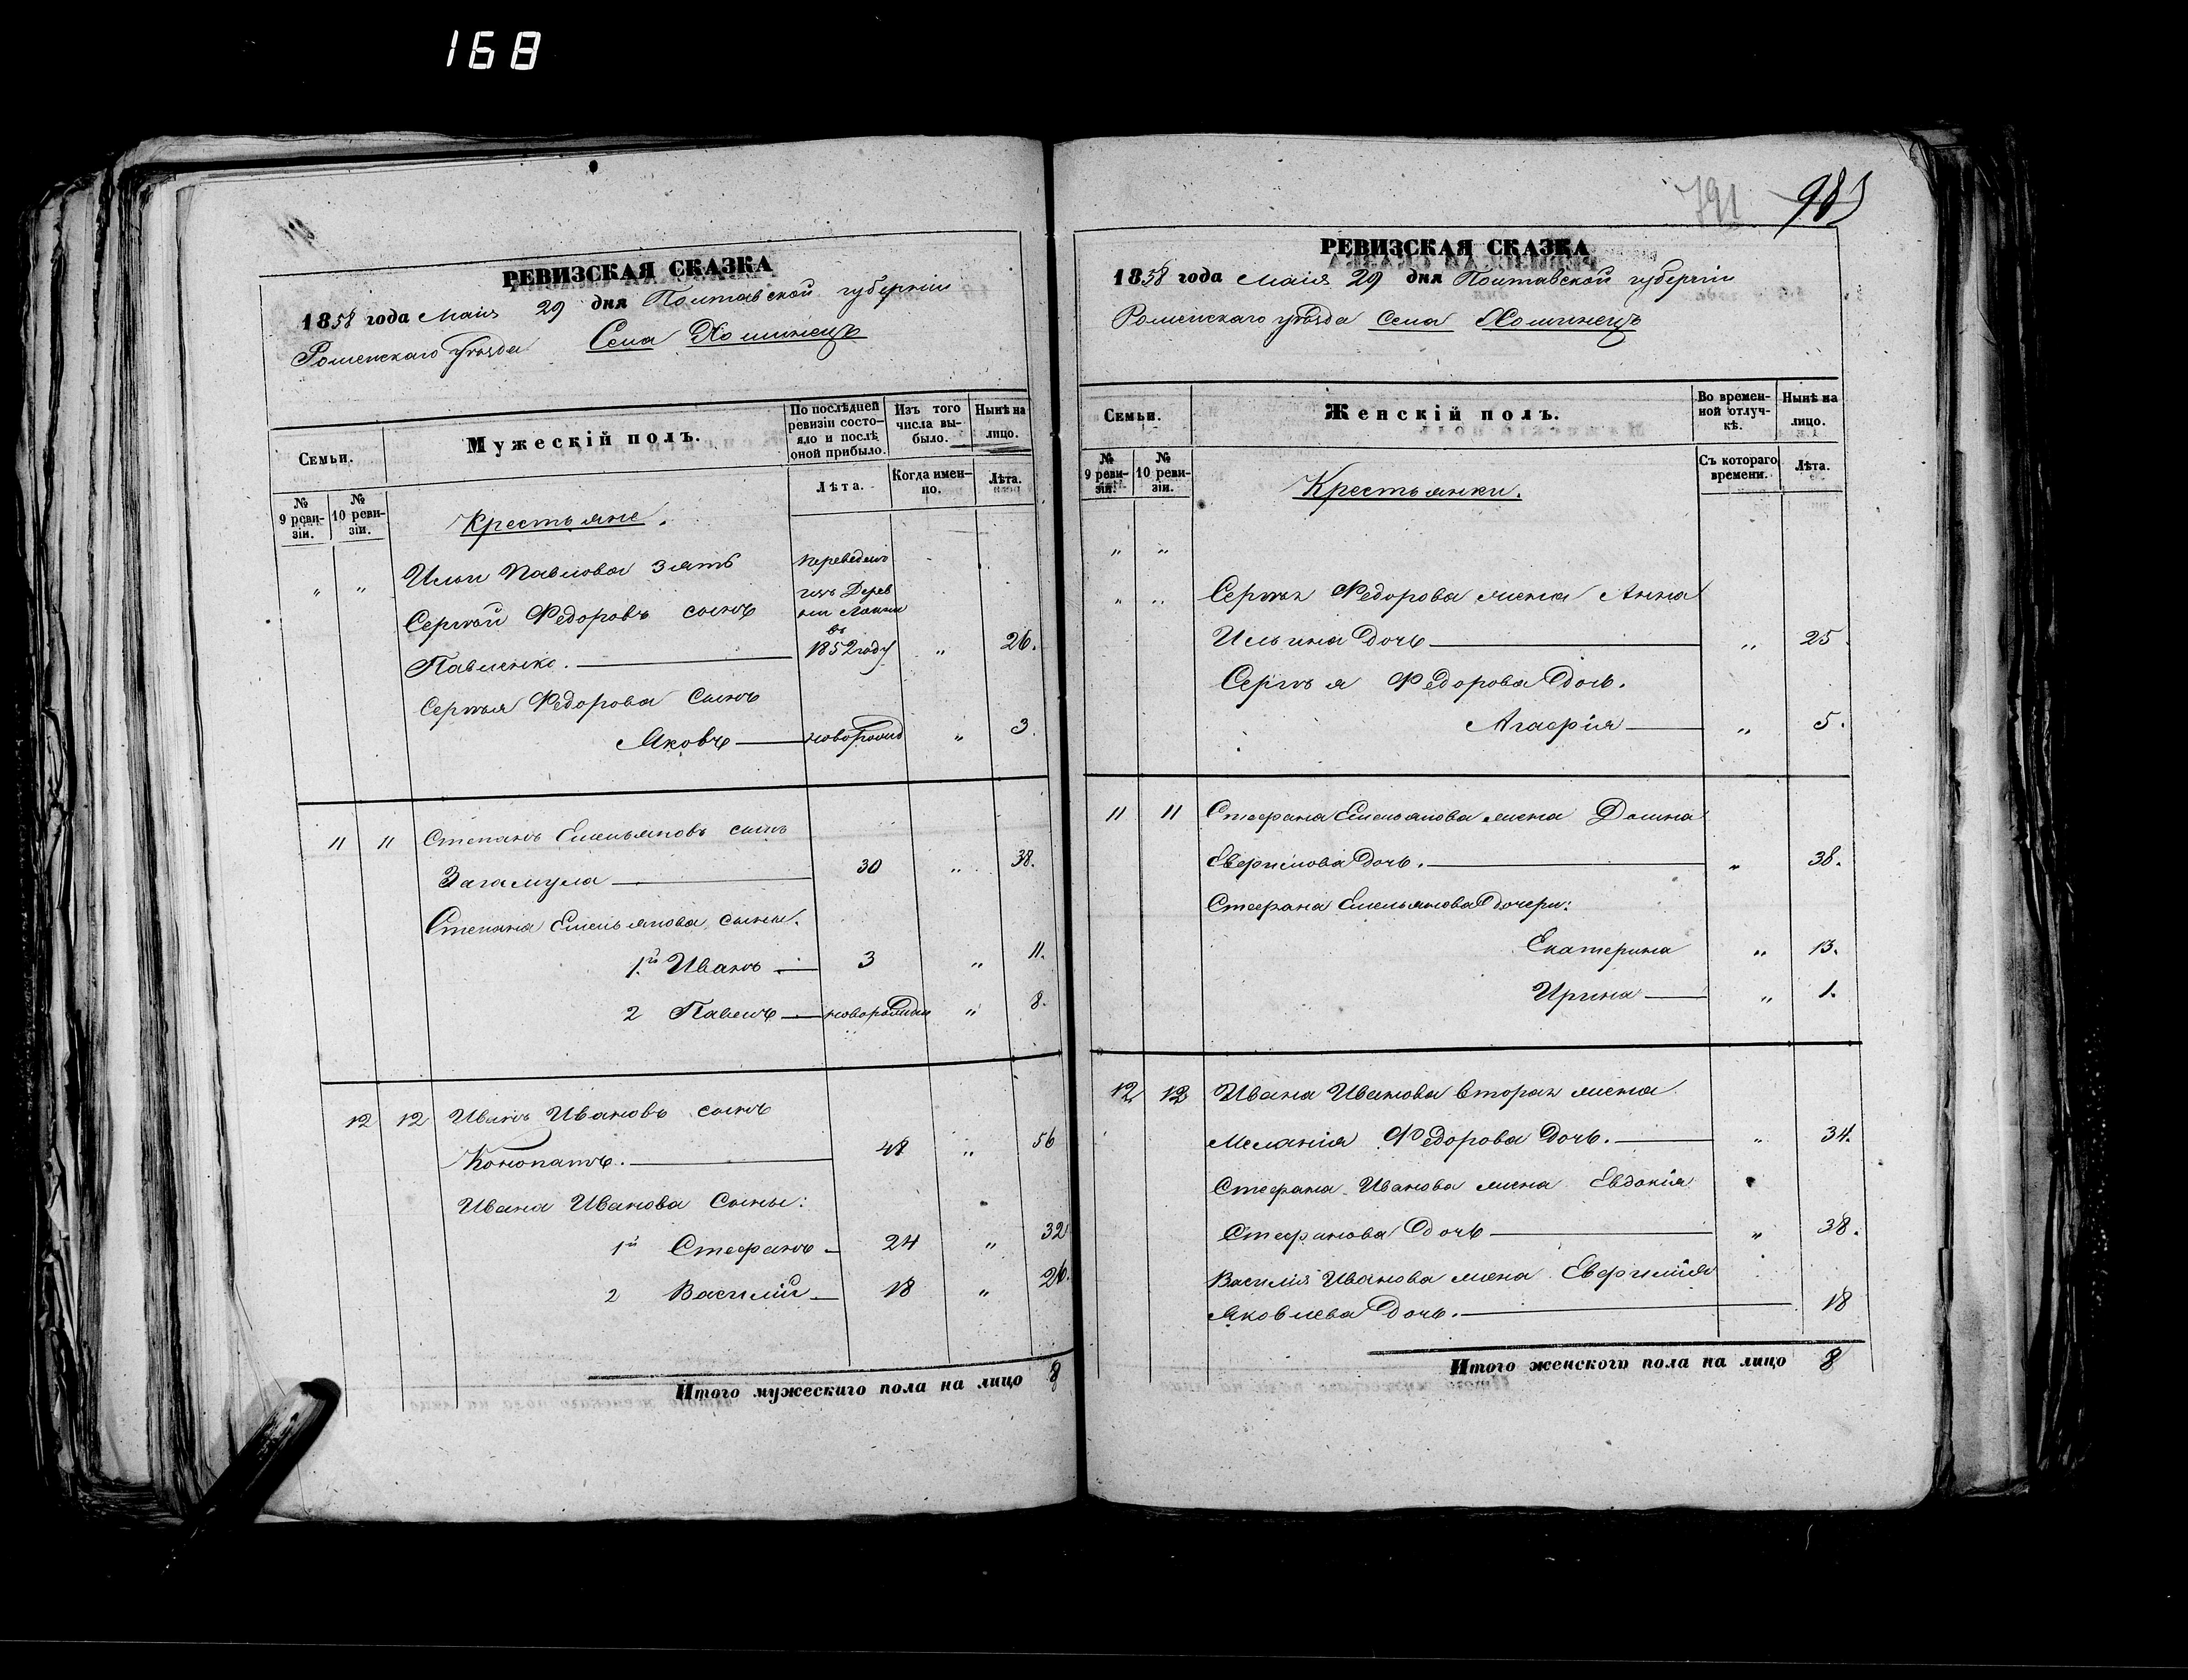 168
РЕВИЗСКАЯ СКАЗКА
1858 года Маія 29 дня Полтавской губерніи
Роменскаго уѣзда Села Хоминецъ
Семьи.
Мужескій полъ.
По послѣдней ревизіи состояло и послѣ оной прибыло.
Изъ того числа выбыло.
Нынѣ на лицо.
№ 9 ревизіи.
№ 10 ревизіи.
Лѣта.
Когда именно.
Лѣта.
Крестьяне.
" " Ильи Павлова зять переведенъ
изъ Дерев
Сергѣй Федоровъ сынъ
въ
Павленко. 1852 году " 26.
Сергѣя Федорова сынъ
Яковъ новорожд " 3.
11 11 Степанъ Емельяновъ сынъ
Загамула 30 " 38.
Степана Емельянова сыны.
1й Иванъ 3 " 11.
2 Павелъ новорожден " 8.
12 12 Иванъ Ивановъ сынъ
Конопатъ. 48 " 56
Ивана Иванова Сыны:
1й Стефанъ 24 " 32
2 Василій 18 " 26.
Итого мужескаго пола на лицо 8
791 985
РЕВИЗСКАЯ СКАЗКА
1858 года Маія 29 дня Полтавской губерніи
Роменскаго уѣзда Села Хоминецъ
Семьи.
Женскій полъ.
Во временной отлучкѣ.
Нынѣ на лицо.
№ 9 ревизіи.
№ 10 ревизіи.
Съ котораго времени.
Лѣта.
Крестьянки.
" "
" " Сергѣя Федорова жена Анна
Ильина Дочь " 25.
Сергѣя Федорова Дочь.
Агафія " 5.
11 11 Стефана Емельянова жена Домна
Евфимова Дочь. " 38.
Стефана Емельянова Дочери:
Екатерина " 13.
Ирина " 1.
12 12 Ивана Иванова вторая жена
Меланія Федорова Дочь. " 34.
Стефана Иванова жена Евдокія
Стефанова Дочь " 38.
Василія Иванова жена Евфимія
Яковлева Дочь. 18
Итого женского пола на лицо 8